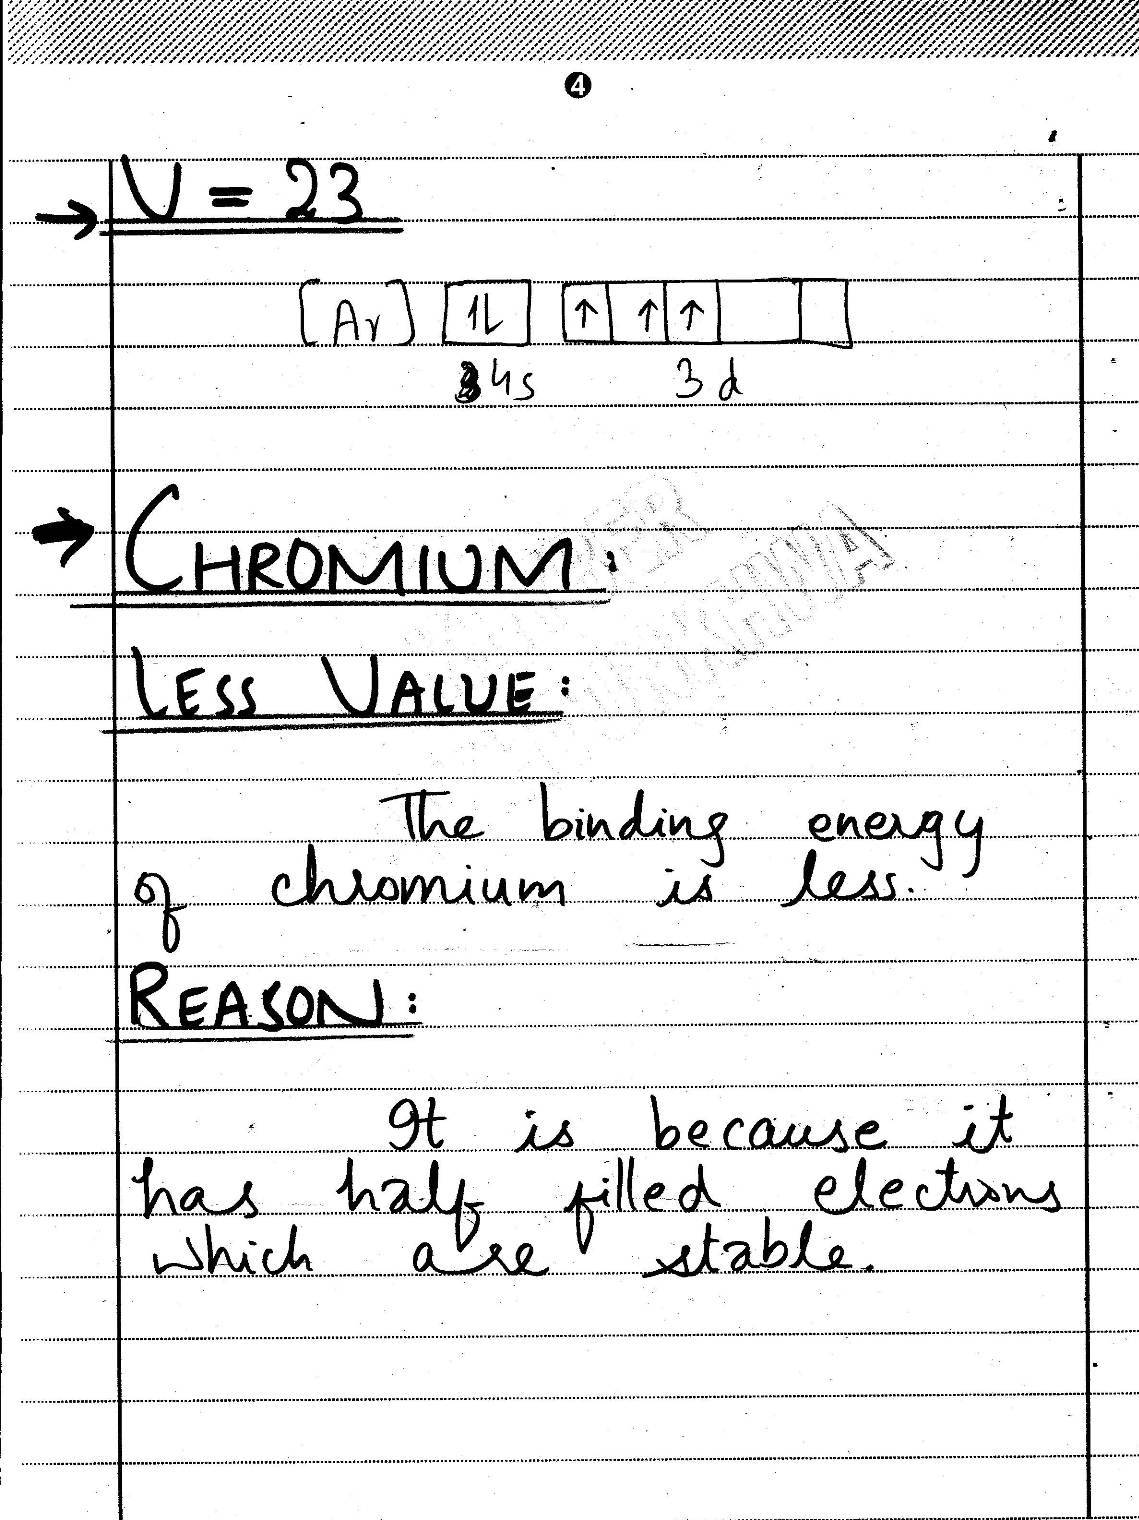 4
→ V = 23
[Ar] 1L ↑ ↑ ↑
4s 3d
→ CHROMIUM:
LESS VALUE:
The binding energy
of chromium is less.
REASON:
It is because it
has half filled electrons
which are stable.